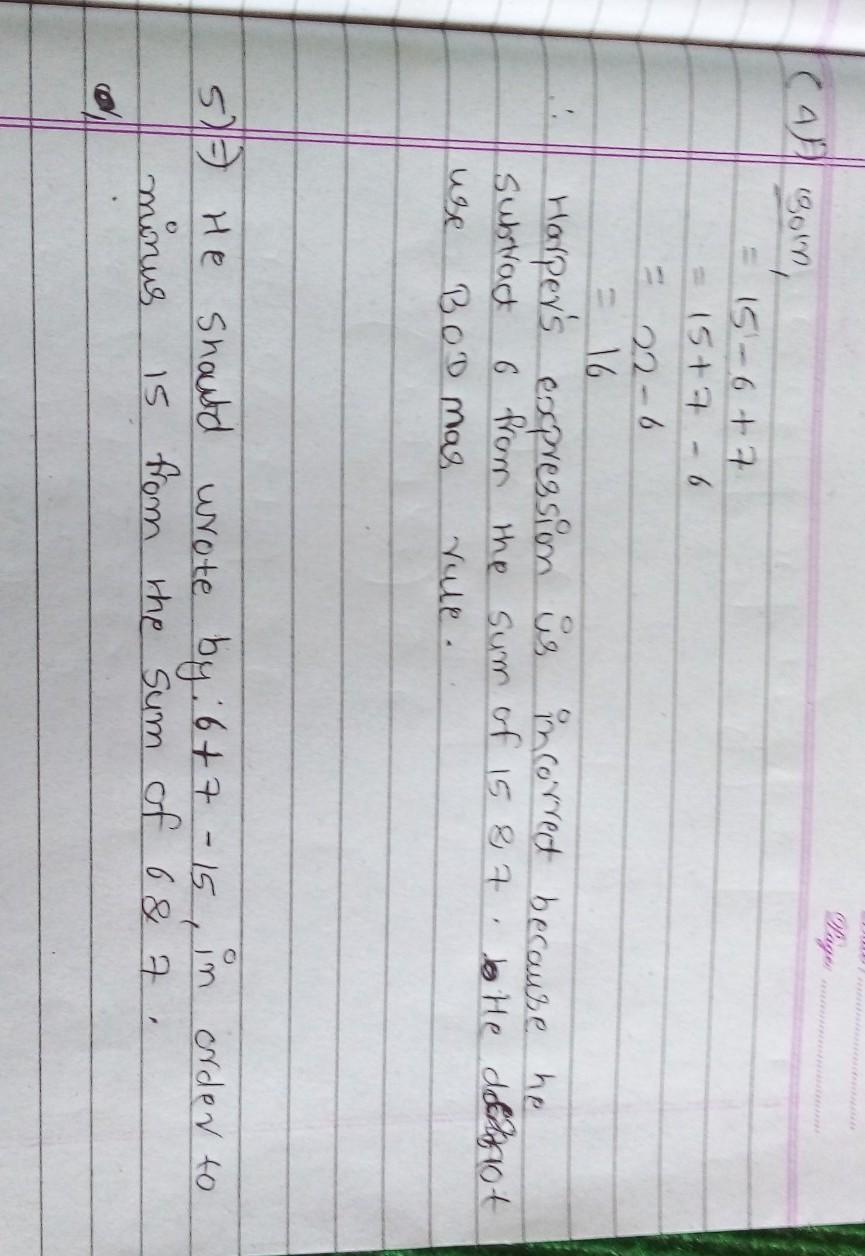 Page
(4)⇒ Soln,
= 15 - 6 + 7
= 15 + 7 - 6
= 22 - 6
= 16
∴ Harper's expression is incorrect because he
subtract 6 from the sum of 15 & 7. He not
use BODmas rule.
5)⇒ He should wrote by: 6 + 7 - 15, in order to
minus 15 from the sum of 6 & 7.